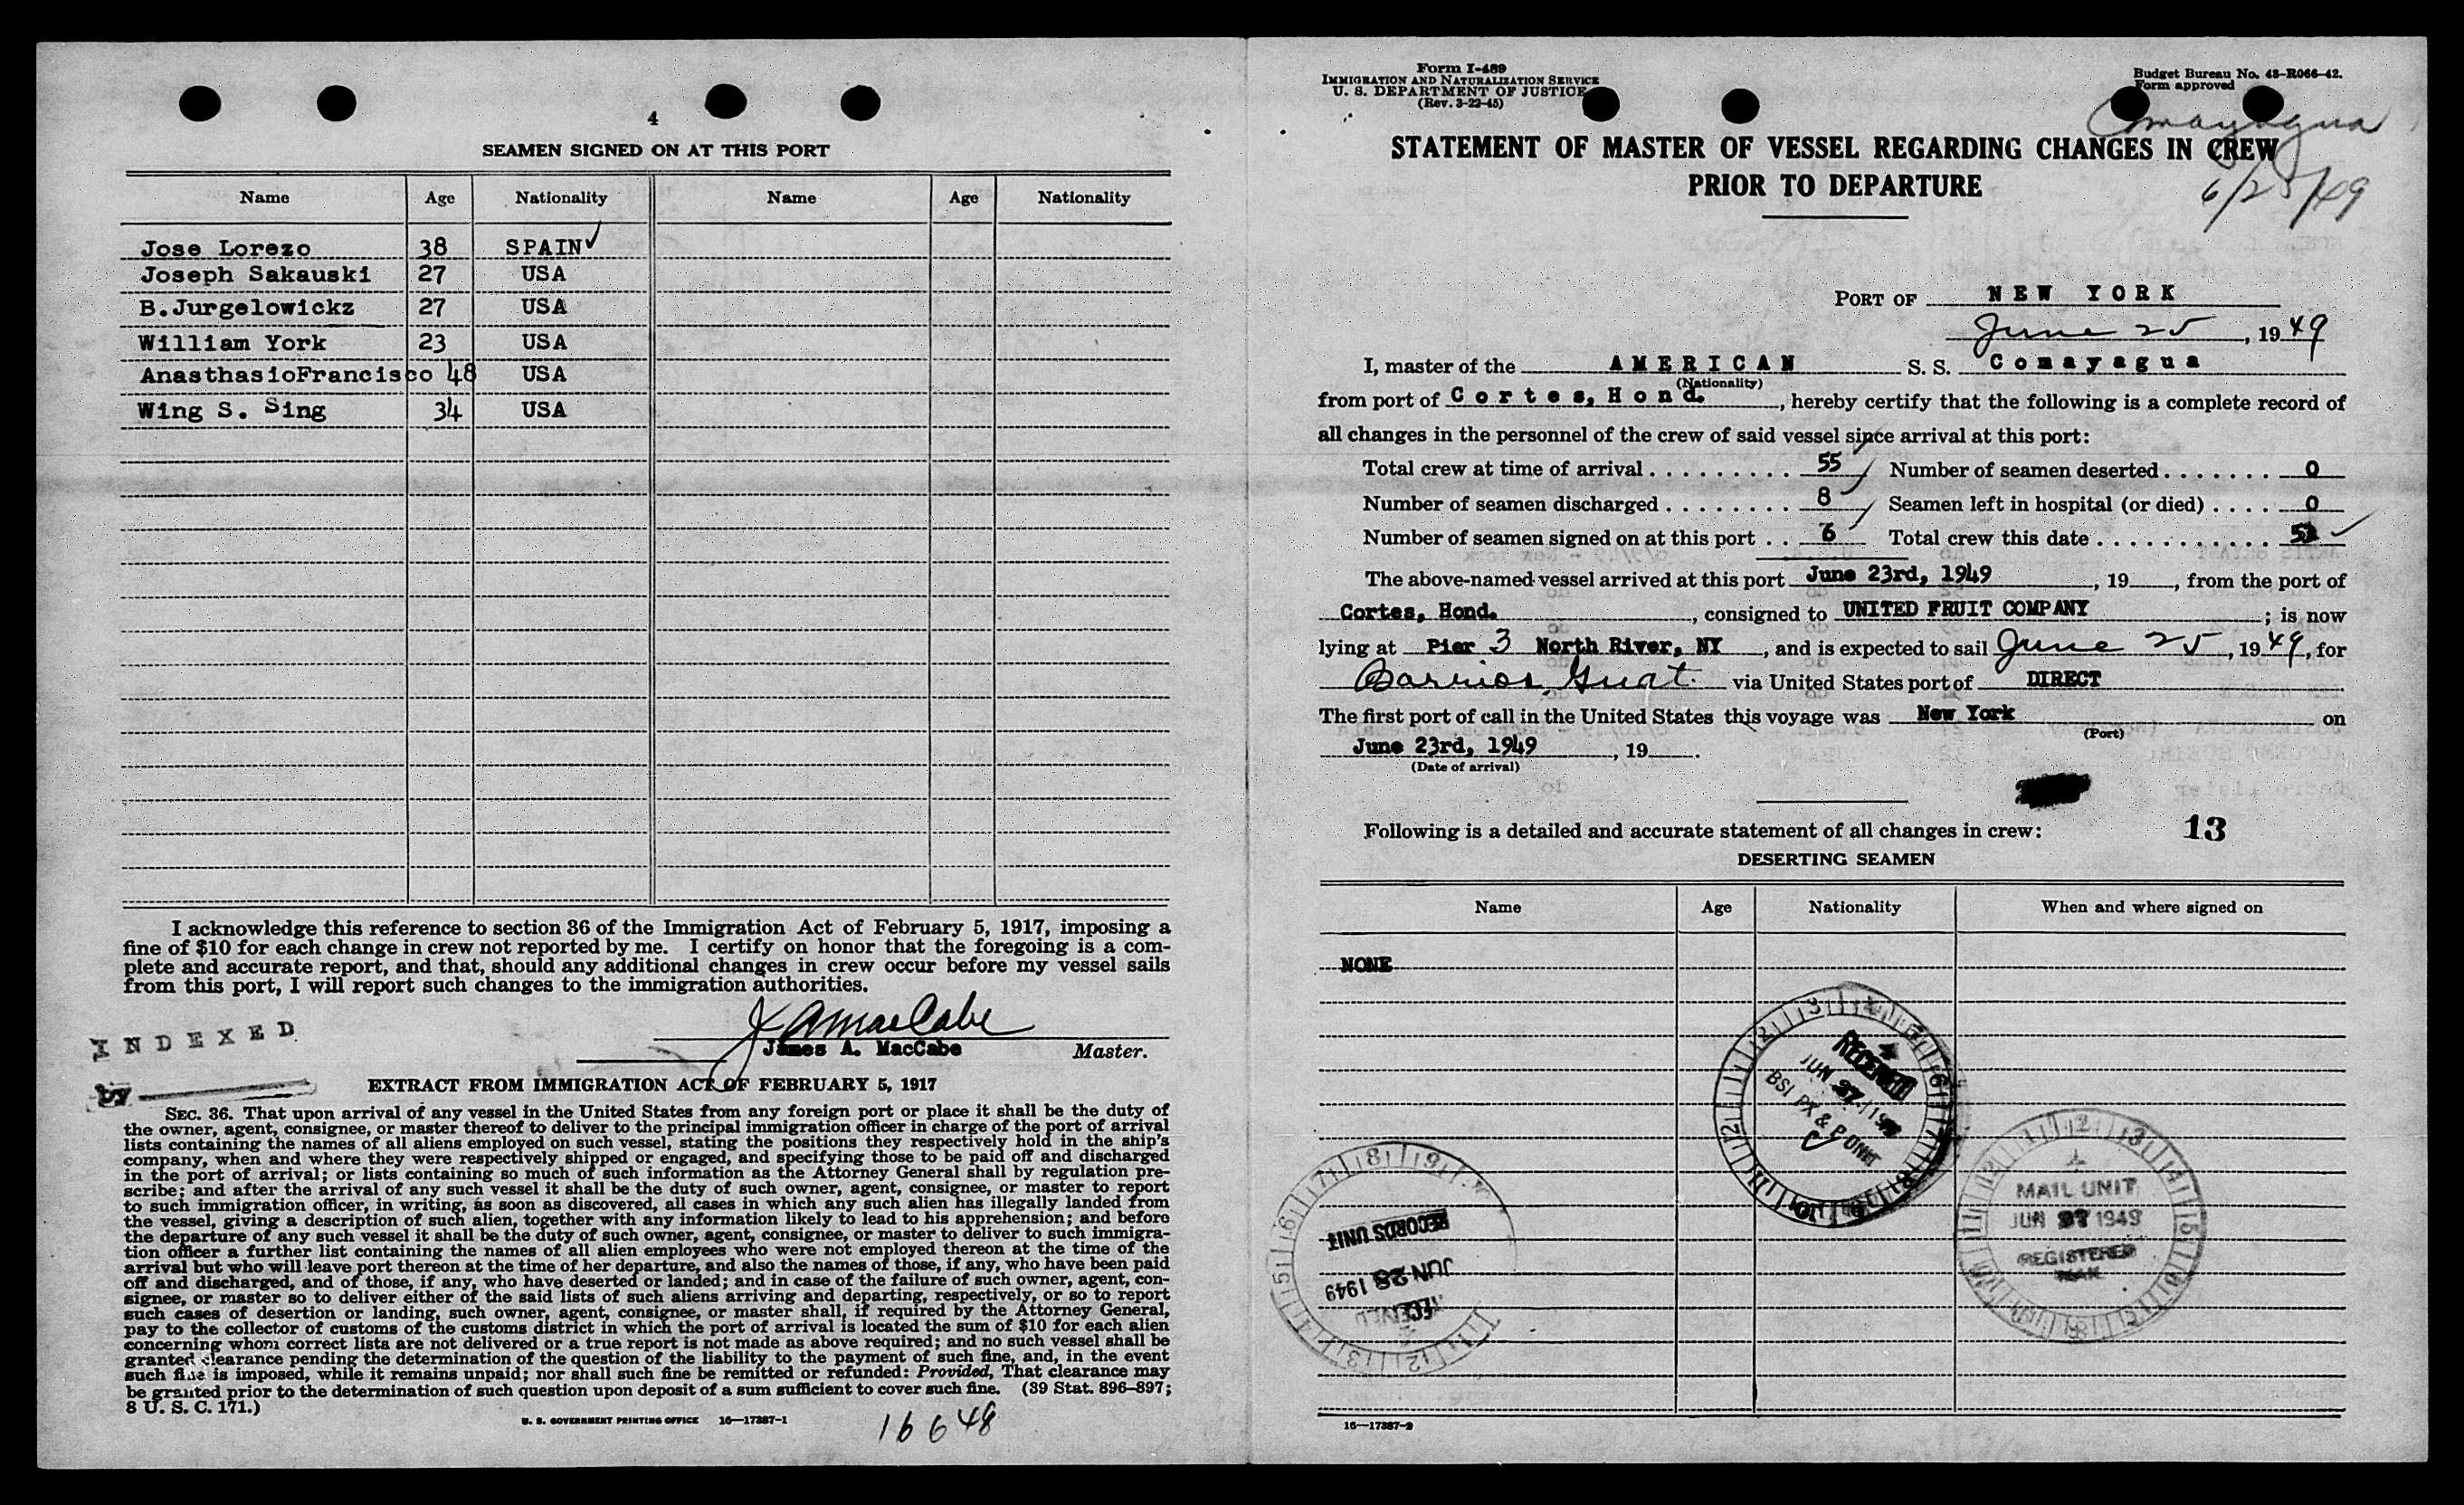 4
SEAMEN SIGNED ON AT THIS PORT
Name Age Nationality Name Age Nationality
Jose Lorezo 38 SPAIN ✓
Joseph Sakauski 27 USA
B.Jurgelowickz 27 USA
William York 23 USA
AnasthasioFrancisco 48 USA
Wing S. Sing 34 USA
I acknowledge this reference to section 36 of the Immigration Act of February 5, 1917, imposing a
fine of $10 for each change in crew not reported by me. I certify on honor that the foregoing is a com-
plete and accurate report, and that, should any additional changes in crew occur before my vessel sails
from this port, I will report such changes to the immigration authorities.
J A MacCabe
James A. MacCabe Master.
INDEXED
by
EXTRACT FROM IMMIGRATION ACT OF FEBRUARY 5, 1917
SEC. 36. That upon arrival of any vessel in the United States from any foreign port or place it shall be the duty of
the owner, agent, consignee, or master thereof to deliver to the principal immigration officer in charge of the port of arrival
lists containing the names of all aliens employed on such vessel, stating the positions they respectively hold in the ship's
company, when and where they were respectively shipped or engaged, and specifying those to be paid off and discharged
in the port of arrival; or lists containing so much of such information as the Attorney General shall by regulation pre-
scribe; and after the arrival of any such vessel it shall be the duty of such owner, agent, consignee, or master to report
to such immigration officer, in writing, as soon as discovered, all cases in which any such alien has illegally landed from
the vessel, giving a description of such alien, together with any information likely to lead to his apprehension; and before
the departure of any such vessel it shall be the duty of such owner, agent, consignee, or master to deliver to such immigra-
tion officer a further list containing the names of all alien employees who were not employed thereon at the time of the
arrival but who will leave port thereon at the time of her departure, and also the names of those, if any, who have been paid
off and discharged, and of those, if any, who have deserted or landed; and in case of the failure of such owner, agent, con-
signee, or master so to deliver either of the said lists of such aliens arriving and departing, respectively, or so to report
such cases of desertion or landing, such owner, agent, consignee, or master shall, if required by the Attorney General,
pay to the collector of customs of the customs district in which the port of arrival is located the sum of $10 for each alien
concerning whom correct lists are not delivered or a true report is not made as above required; and no such vessel shall be
granted clearance pending the determination of the question of the liability to the payment of such fine, and, in the event
such fine is imposed, while it remains unpaid; nor shall such fine be remitted or refunded: Provided, That clearance may
be granted prior to the determination of such question upon deposit of a sum sufficient to cover such fine. (39 Stat. 896–897;
8 U. S. C. 171.)
U. S. GOVERNMENT PRINTING OFFICE 16—17387-1
16648
Form I-489
IMMIGRATION AND NATURALIZATION SERVICE
U. S. DEPARTMENT OF JUSTICE
(Rev. 3-22-45)
Budget Bureau No. 43-R066-42.
Form approved
Comayagua
STATEMENT OF MASTER OF VESSEL REGARDING CHANGES IN CREW
PRIOR TO DEPARTURE
6/25/49
PORT OF NEW YORK
June 25, 1949
I, master of the AMERICAN S. S. Comayagua
(Nationality)
from port of Cortes, Hond., hereby certify that the following is a complete record of
all changes in the personnel of the crew of said vessel since arrival at this port:
Total crew at time of arrival . . . . . . . . . 55 Number of seamen deserted . . . . . . . 0
Number of seamen discharged . . . . . . . . 8 Seamen left in hospital (or died) . . . . 0
Number of seamen signed on at this port . . 6 Total crew this date . . . . . . . . . . .
The above-named vessel arrived at this port June 23rd, 1949, 19 , from the port of
Cortes, Hond., consigned to UNITED FRUIT COMPANY; is now
lying at Pier 3 North River, NY, and is expected to sail June 25, 1949, for
Barrios, Guat. via United States port of DIRECT
The first port of call in the United States this voyage was New York on
(Port)
June 23rd, 1949, 19 .
(Date of arrival)
Following is a detailed and accurate statement of all changes in crew: 13
DESERTING SEAMEN
Name Age Nationality When and where signed on
NONE
RECEIVED
JUN 27
BSI PX & P UNIT
MAIL UNIT
JUN 27 1949
REGISTERED
RECORDS UNIT
JUN 28 1949
RECEIVED
16—17387-2